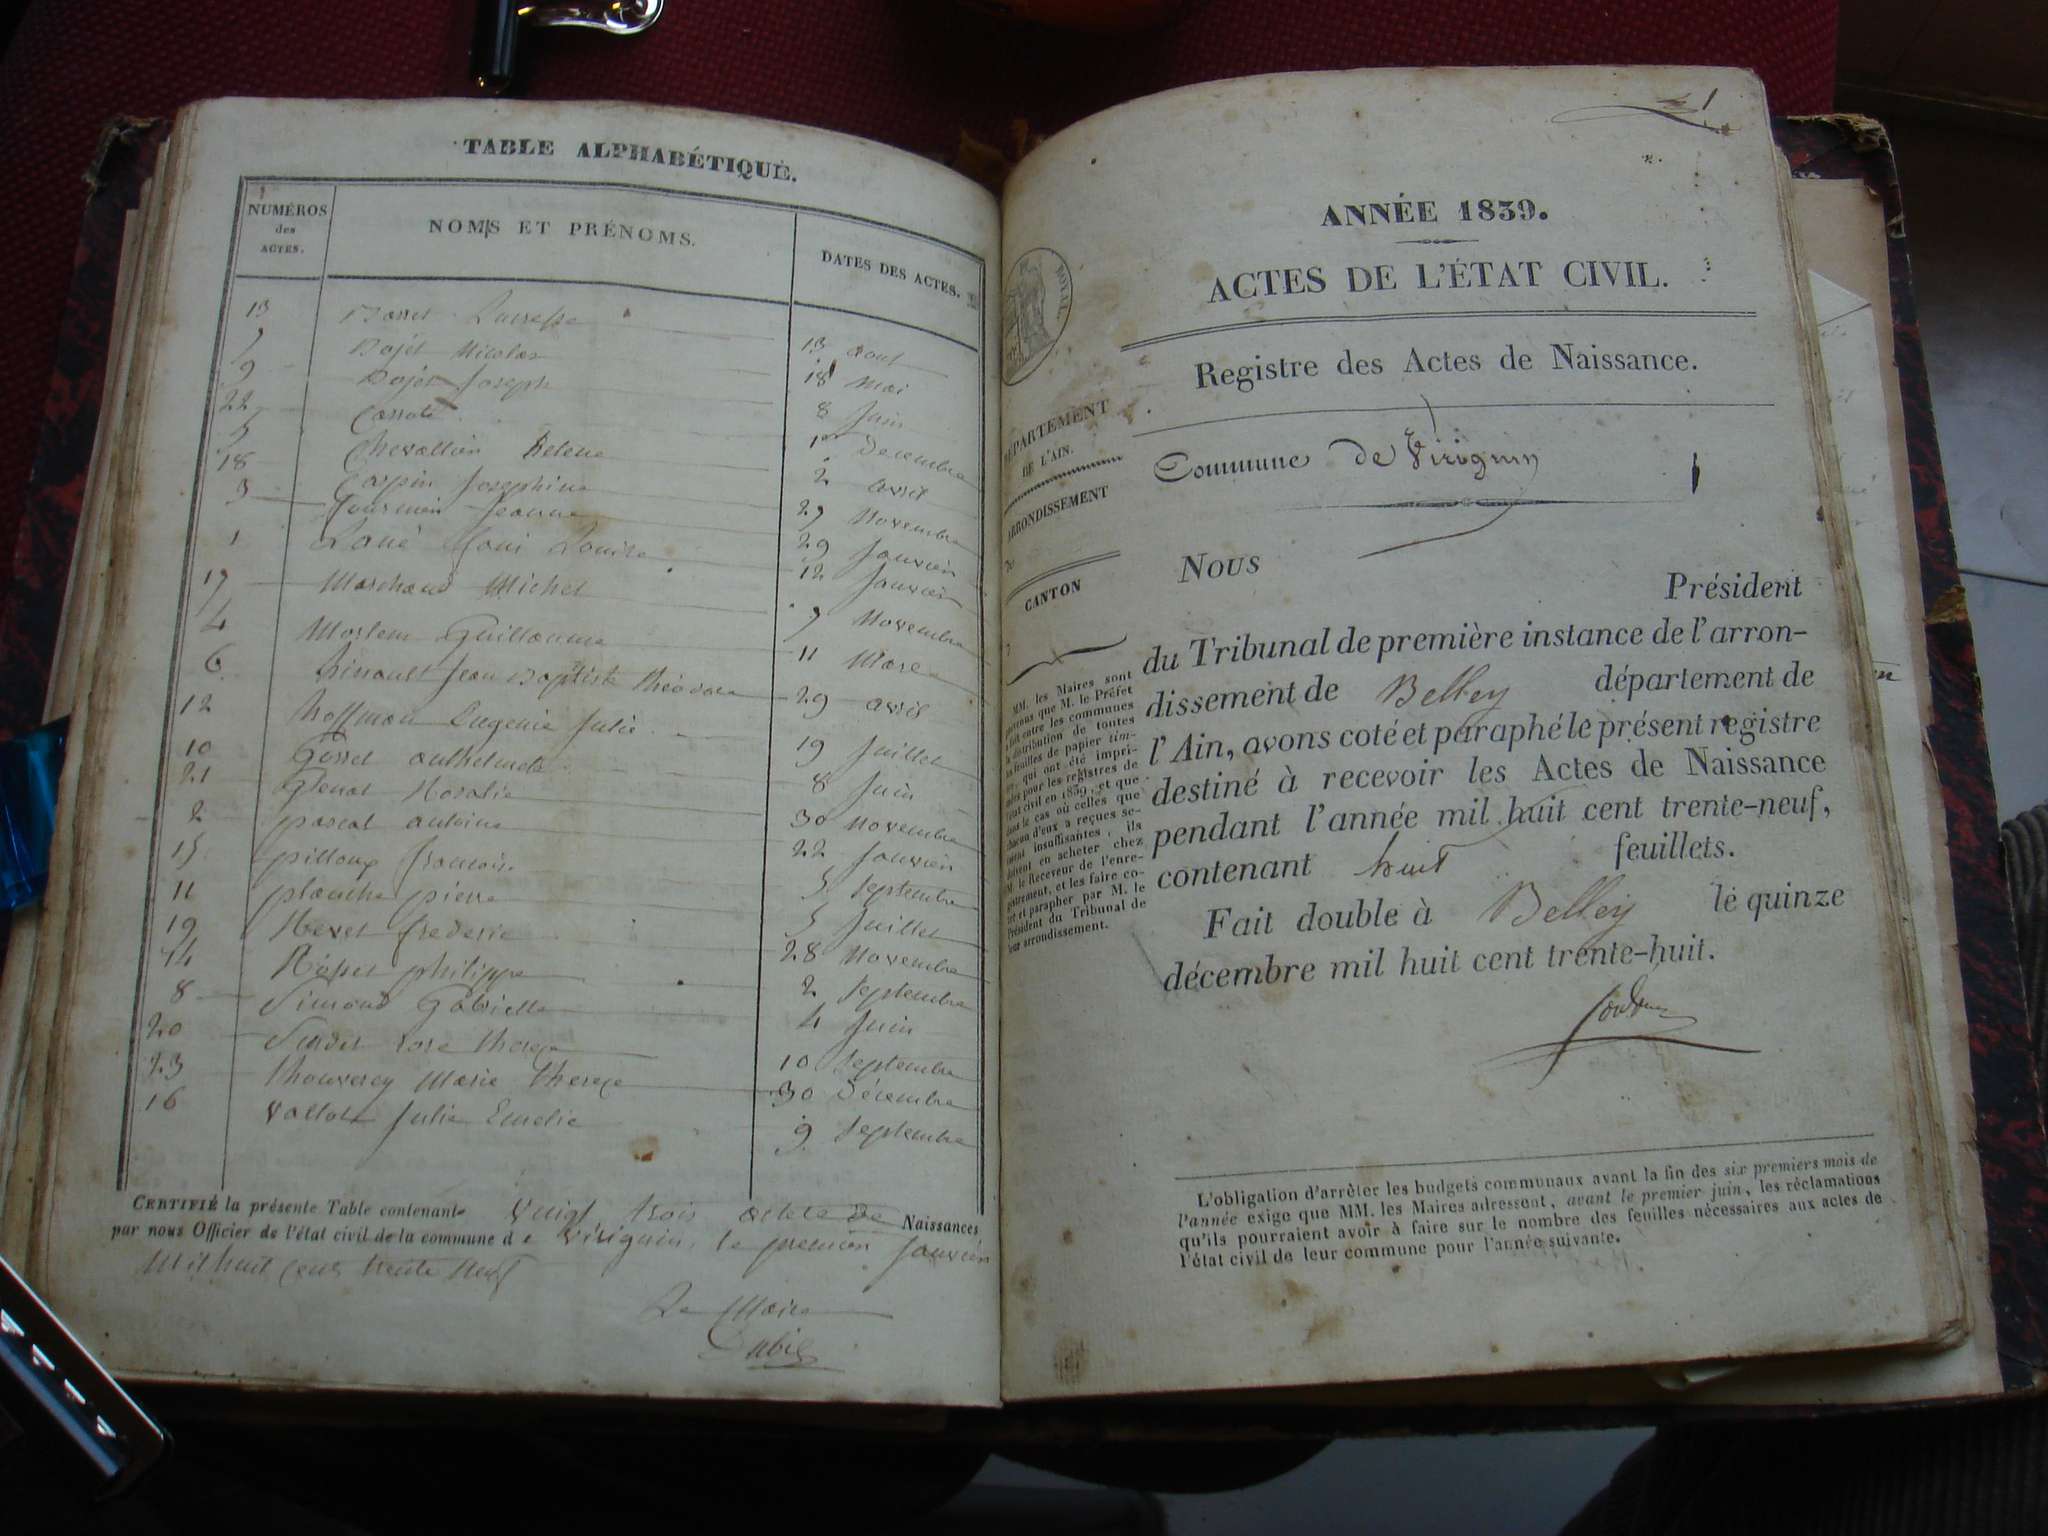 TABLE ALPHABÉTIQUE.
NUMÉROS des ACTES.
NOMS ET PRÉNOMS.
DATES DES ACTES.
13 13 aout
7 Bojet Nicolas 18 Mai
9 Bojet Joseph 8 Juin
22 1er Decembre
5 Chevallier helene 2 avril
18 Carpin Josephine 29 Novembre
3 Fournier Jeanne 29 Janvier
1 Louise 12 Janvier
17 Marchand Michel 7 Novembre
4 Guillaume 11 Mars
6 Jean Baptiste théodore 29 avril
12 hoffman Eugenie Julie 19 Juillet
10 Gosset anthelmete 8 Juin
21 Glenat Rosalie 30 Novembre
2 pascal antoine 22 Janvier
15 pilloup francois 5 Septembre
11 planche pierre 5 Juillet
19 Revet frederic 28 Novembre
14 philippe 2 Septembre
8 Simond Gabrielle 4 Juin
20 rose therese 10 Septembre
23 thouverey Marie therese 30 Décembre
16 Julie Emelie 9 Septembre
CERTIFIÉ la présente Table contenant vingt trois actes de Naissances
par nous Officier de l'état civil de la commune de Virignin, le premier Janvier
Mil huit cent trente neuf
Le Maire
1
ANNÉE 1839.
ACTES DE L'ÉTAT CIVIL.
ROYAL
Registre des Actes de Naissance.
DÉPARTEMENT
DE L'AIN.
Commune de Virignin
ARRONDISSEMENT
de
CANTON
Nous Président
du Tribunal de première instance de l'arron-
dissement de Belley département de
l'Ain, avons coté et paraphé le présent registre
destiné à recevoir les Actes de Naissance
pendant l'année mil huit cent trente-neuf,
contenant huit feuillets.
Fait double à Belley le quinze
décembre mil huit cent trente-huit.
MM. les Maires sont
prévenus que M. le Préfet
a fait entre les communes
la distribution de toutes
les feuilles de papier tim-
bré, qui ont été impri-
mées pour les registres de
l'état civil en 1839, et que
dans le cas où celles que
chacun d'eux a reçues se-
raient insuffisantes, ils
doivent en acheter chez
M. le Receveur de l'enre-
gistrement, et les faire co-
ter et parapher par M. le
Président du Tribunal de
leur arrondissement.
L'obligation d'arrêter les budgets communaux avant la fin des six premiers mois de
l'année exige que MM. les Maires adressent, avant le premier juin, les réclamations
qu'ils pourraient avoir à faire sur le nombre des feuilles nécessaires aux actes de
l'état civil de leur commune pour l'année suivante.